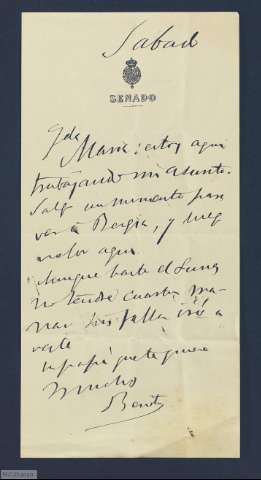 Sabad
SENADO
Qda
Maria: estoy aqui
trabajando mi asunto.
Salgo un momento para
ver á Bergia, y luego
volver aqui.
Aunque hasta el Lunes
no tendré cuartos, ma-
ñana sin falta iré a
verte
tu papá que te quiere
mucho
Benito